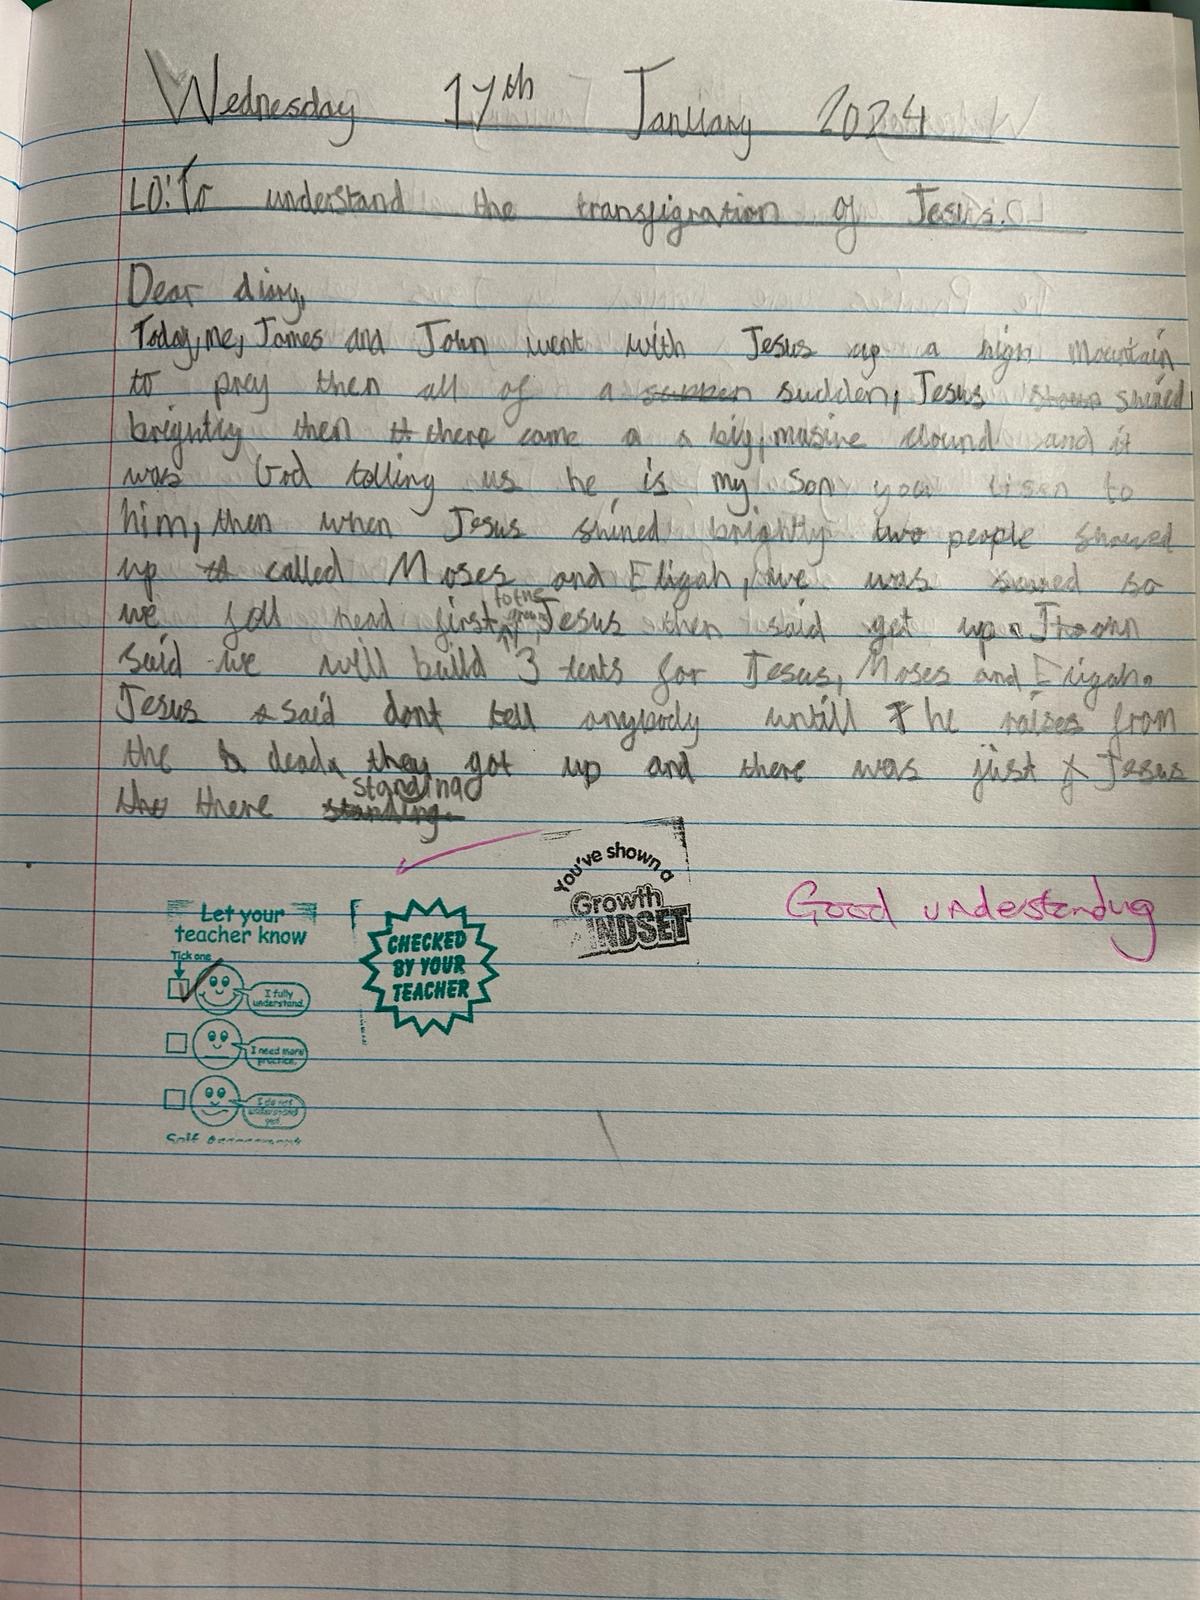 Wednesday 17th January 2024
LO: To understand the transfigration of Jesus.
Dear diary,
Today, me, James and John went with Jesus up a high mountain
to pray then all of a sudden, Jesus shined
brightly then there came a big, masive clound and it
was God telling us he is my Son you lisen to
him, then when Jesus shined brightly two people showed
up called Moses and Eligah, we was scared so
we fall head first to the Jesus then said get up.
said we will build 3 tents for Jesus, Moses and Eligah.
Jesus said dont tell anybody untill he raises from
the dead. they got up and there was just Jesus
there standing
You've shown a
Growth
MINDSET
Good understanding
Let your
teacher know
Tick one
I fully
understand.
I need more
practice.
I do not
understand
yet.
Self Assessment
CHECKED
BY YOUR
TEACHER